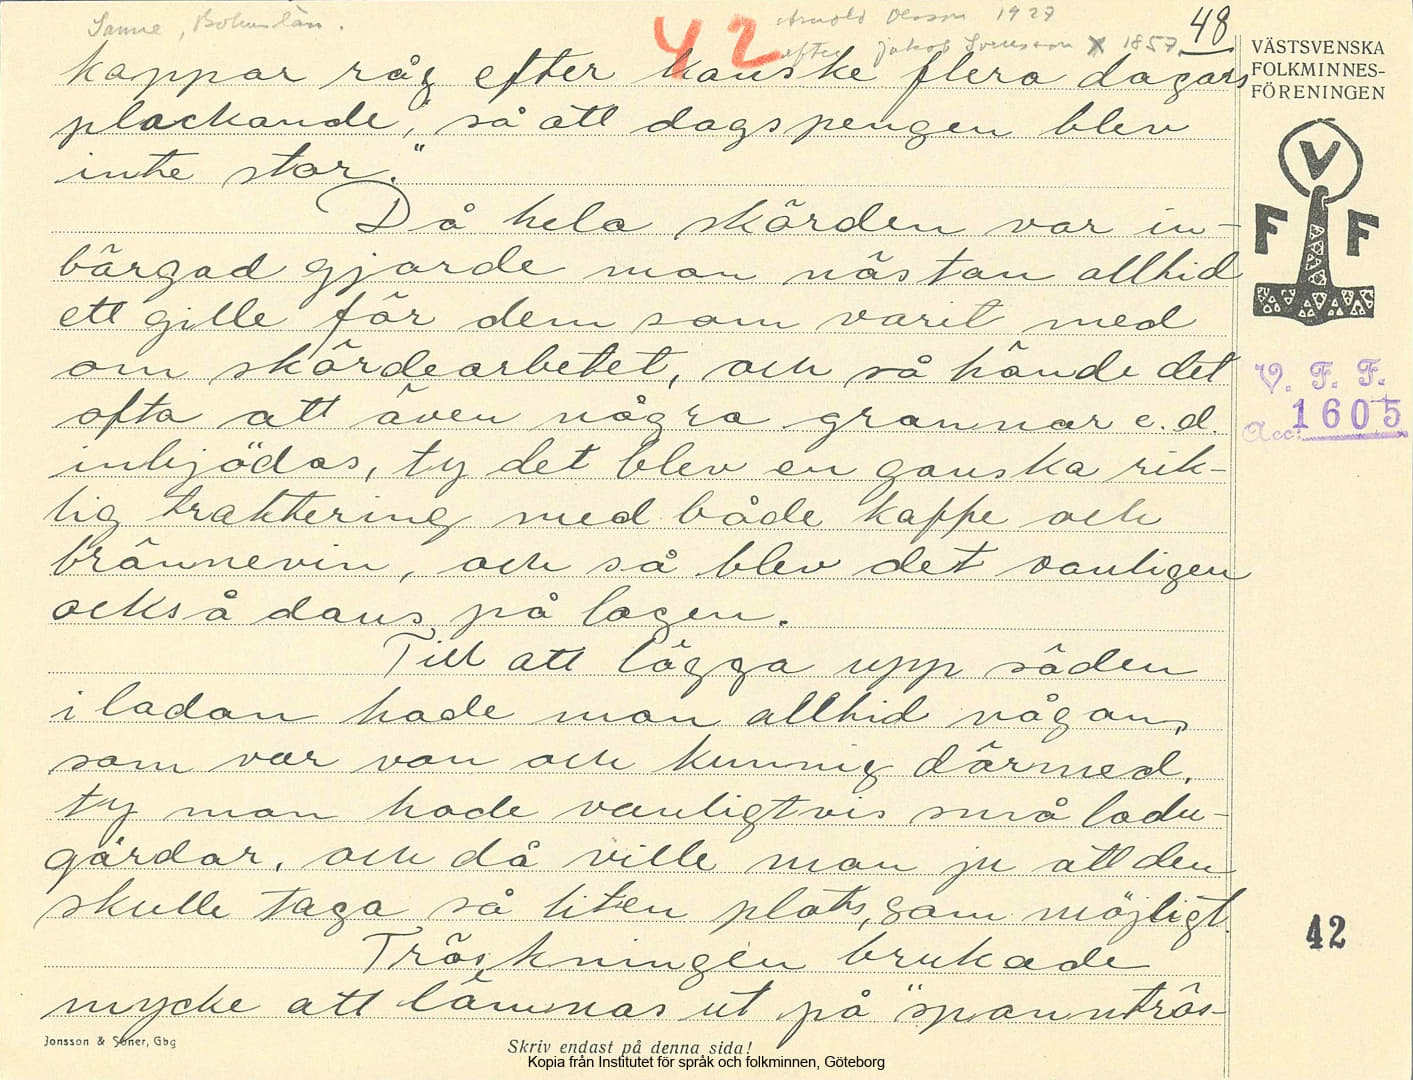 Sanne, Bohuslän.
42
Arnold Olsson 1927
efter Jakob Svensson X 1857.
48
kappar råg efter kanske flera dagars
plockande, så att dagspengen blev
inte stor."
Då hela skörden var in-
bärgad gjorde man nästan alltid
ett gille för dem som varit med
om skördearbetet, och så hände det
ofta att även några grannar e. d.
inbjödos, ty det blev en ganska rik-
lig traktering med både kaffe och
brännevin, och så blev det vanligen
också dans på logen.
Till att lägga upp säden
i ladan hade man alltid någon,
som var van och kunnig därmed,
ty man hade vanligtvis små ladu-
gårdar, och då ville man ju att den
skulle taga så liten plats, som möjligt.
Tröskningen brukade
mycke att lämnas ut på "spanntrös-
VÄSTSVENSKA
FOLKMINNES-
FÖRENINGEN
V
F F
V. F. F.
Acc: 1605
42
Jonsson & Söner, Gbg
Skriv endast på denna sida!
Kopia från Institutet för språk och folkminnen, Göteborg